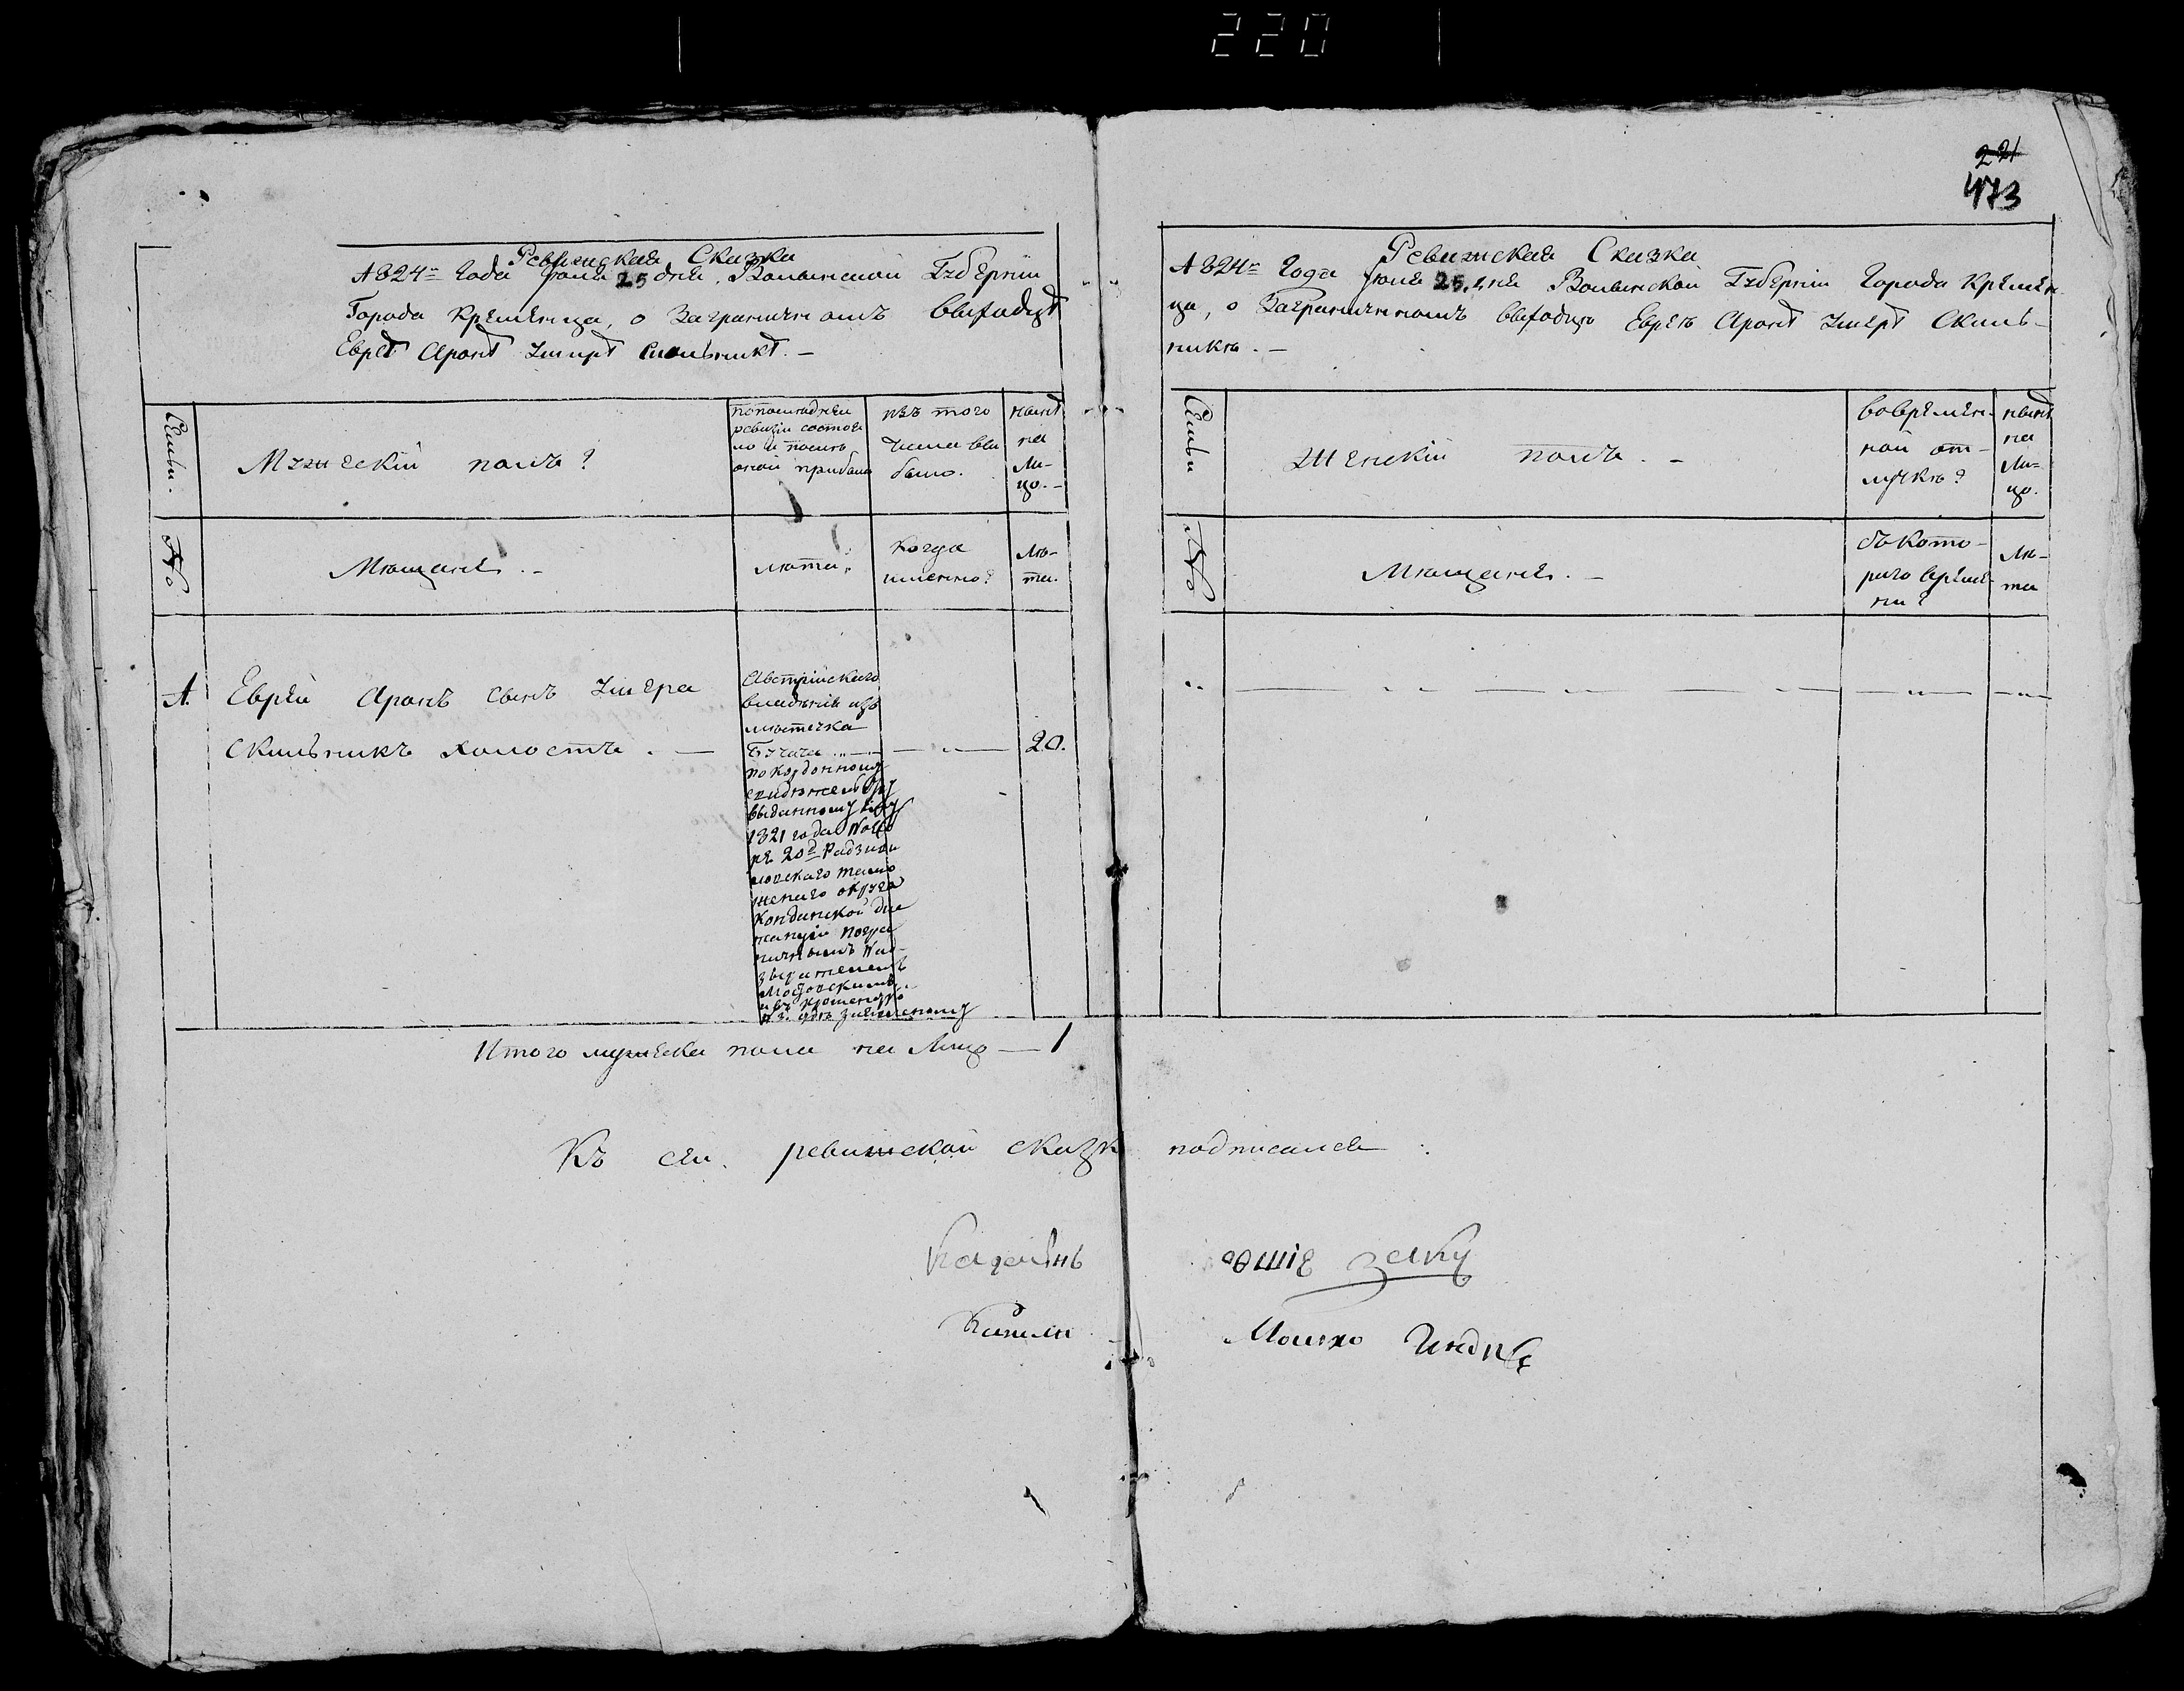 220
221
473
Ревижская Сказка
1824= Года Июля 25 дня, Волынской Губернiи
Города Кременца, о Заграничномъ выходцѣ
Евреѣ Аронѣ Шмерѣ Скильникѣ. —
Семьи.
Мужескiй полъ?
попослѣдней
ревизiи состоя
ло и послѣ
оной прибыло
изъ того
числа вы
было.
нынѣ
на
Ли-
цо. -
№
Мѣщане. -
лѣта.
Когда
именно?
Лѣ-
та.
1. Еврей Аронъ сынъ Шмера
Скильникъ холостъ. —
Австрiйскаго
владѣнiя изъ
мѣстечка
Бучача
покордонному
свидѣтельству
выданному ему
1821 года Нояб
ря 20д Радзиви
ловскаго тамо
женаго округа
Кондинской ди
станцiи Погра
ничнымъ Над-
зирателемъ
20.
Итого мужеска пола на Лицо — 1
Ревижская Сказка
1824= Года Июля 25 дня Волынской Губернiи Города Кремен
ца, о Заграничномъ выходцѣ Евреѣ Аронѣ Шмерѣ Скиль-
никѣ. —
Семьи
Женскiй полъ. -
вовремен-
ной от-
лучкѣ?
нынѣ
на
Ли-
цо.
№
Мѣщане. -
съ Кото-
раго време-
ни?
Лѣ-
та
Къ сей ревижской сказкѣ подписался :
Кагальнъ
Мошко